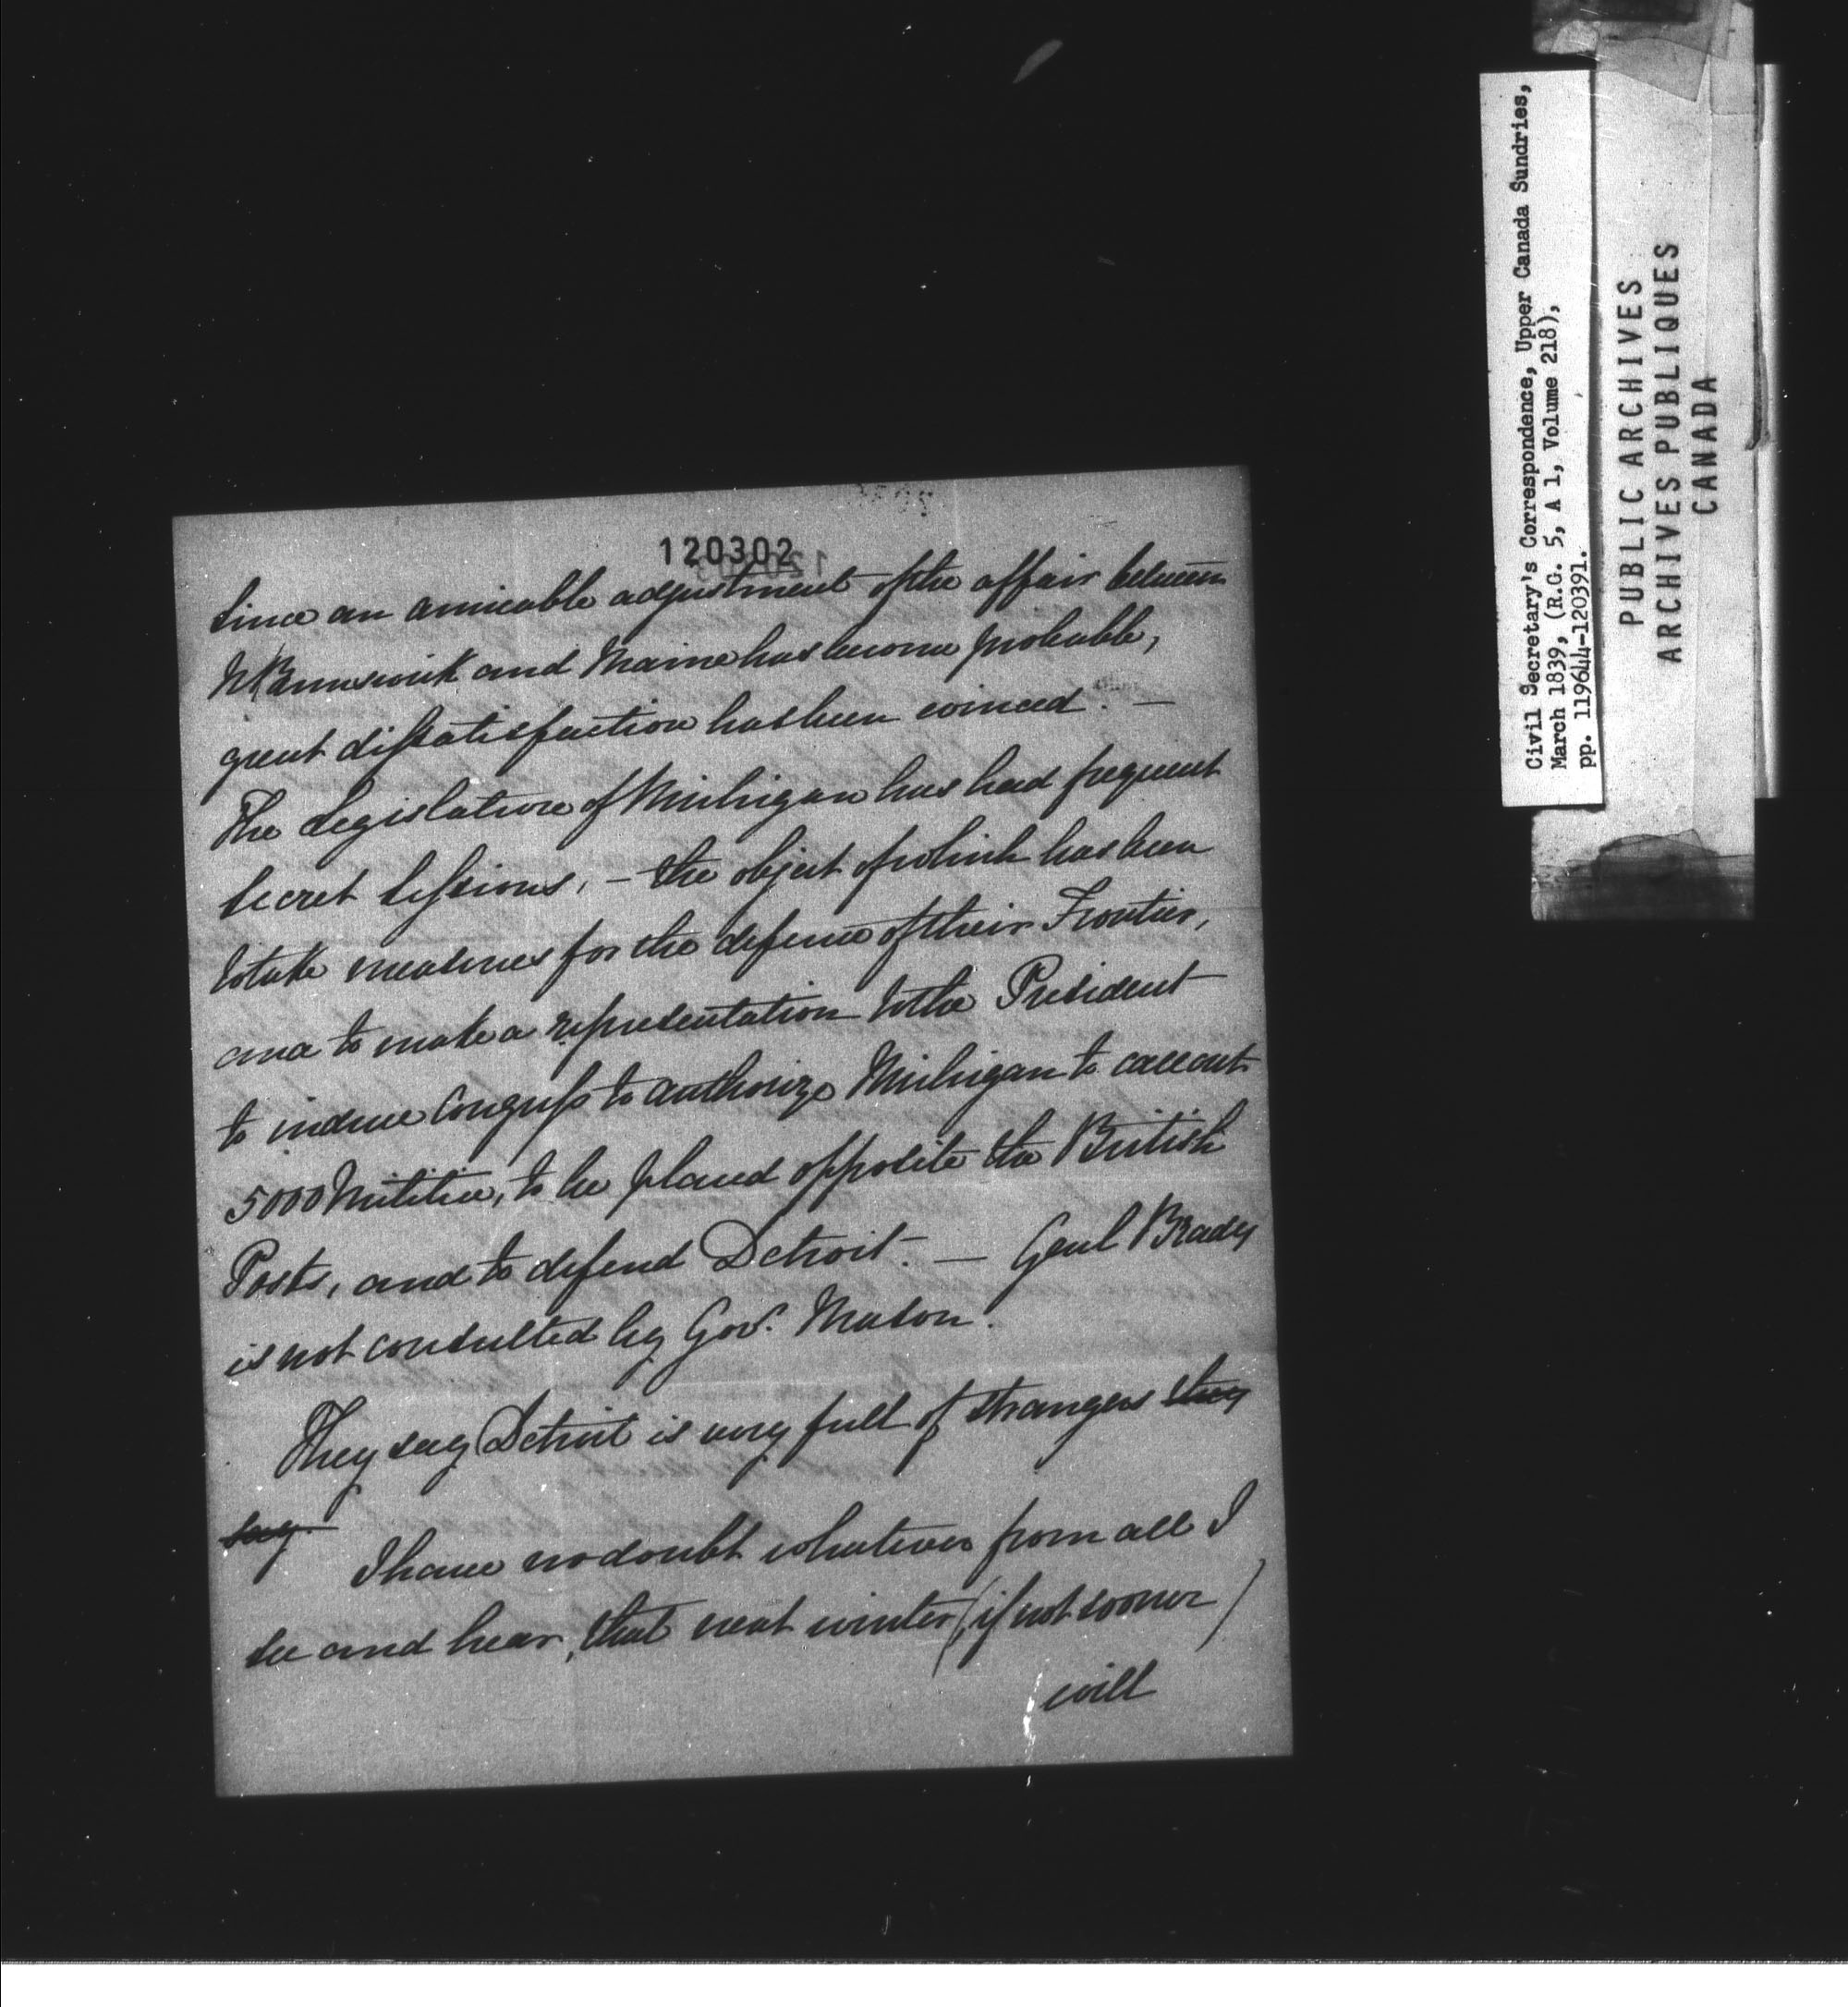 120302
since an amicable adjustment of the affair between
N Brunswick and Maine has become probable,
great dissatisfaction has been evinced. —
The Legislature of Michigan has had frequent
secret sessions, — the object of which has been
to take measures for the defence of their Frontier,
and to make a representation to the President
to induce Congress to authorize Michigan to call out
5000 Militia, to be placed opposite the British
Posts, and to defend Detroit. — Genl Brady
is not consulted by Govr. Mason.
They say Detroit is very full of strangers they
say.
I have no doubt whatever from all I
see and hear, that next winter (if not sooner)
will
Civil Secretary's Correspondence, Upper Canada Sundries,
March 1839, (R.G. 5, A 1, Volume 218),
pp. 119644-120391.
PUBLIC ARCHIVES
ARCHIVES PUBLIQUES
CANADA